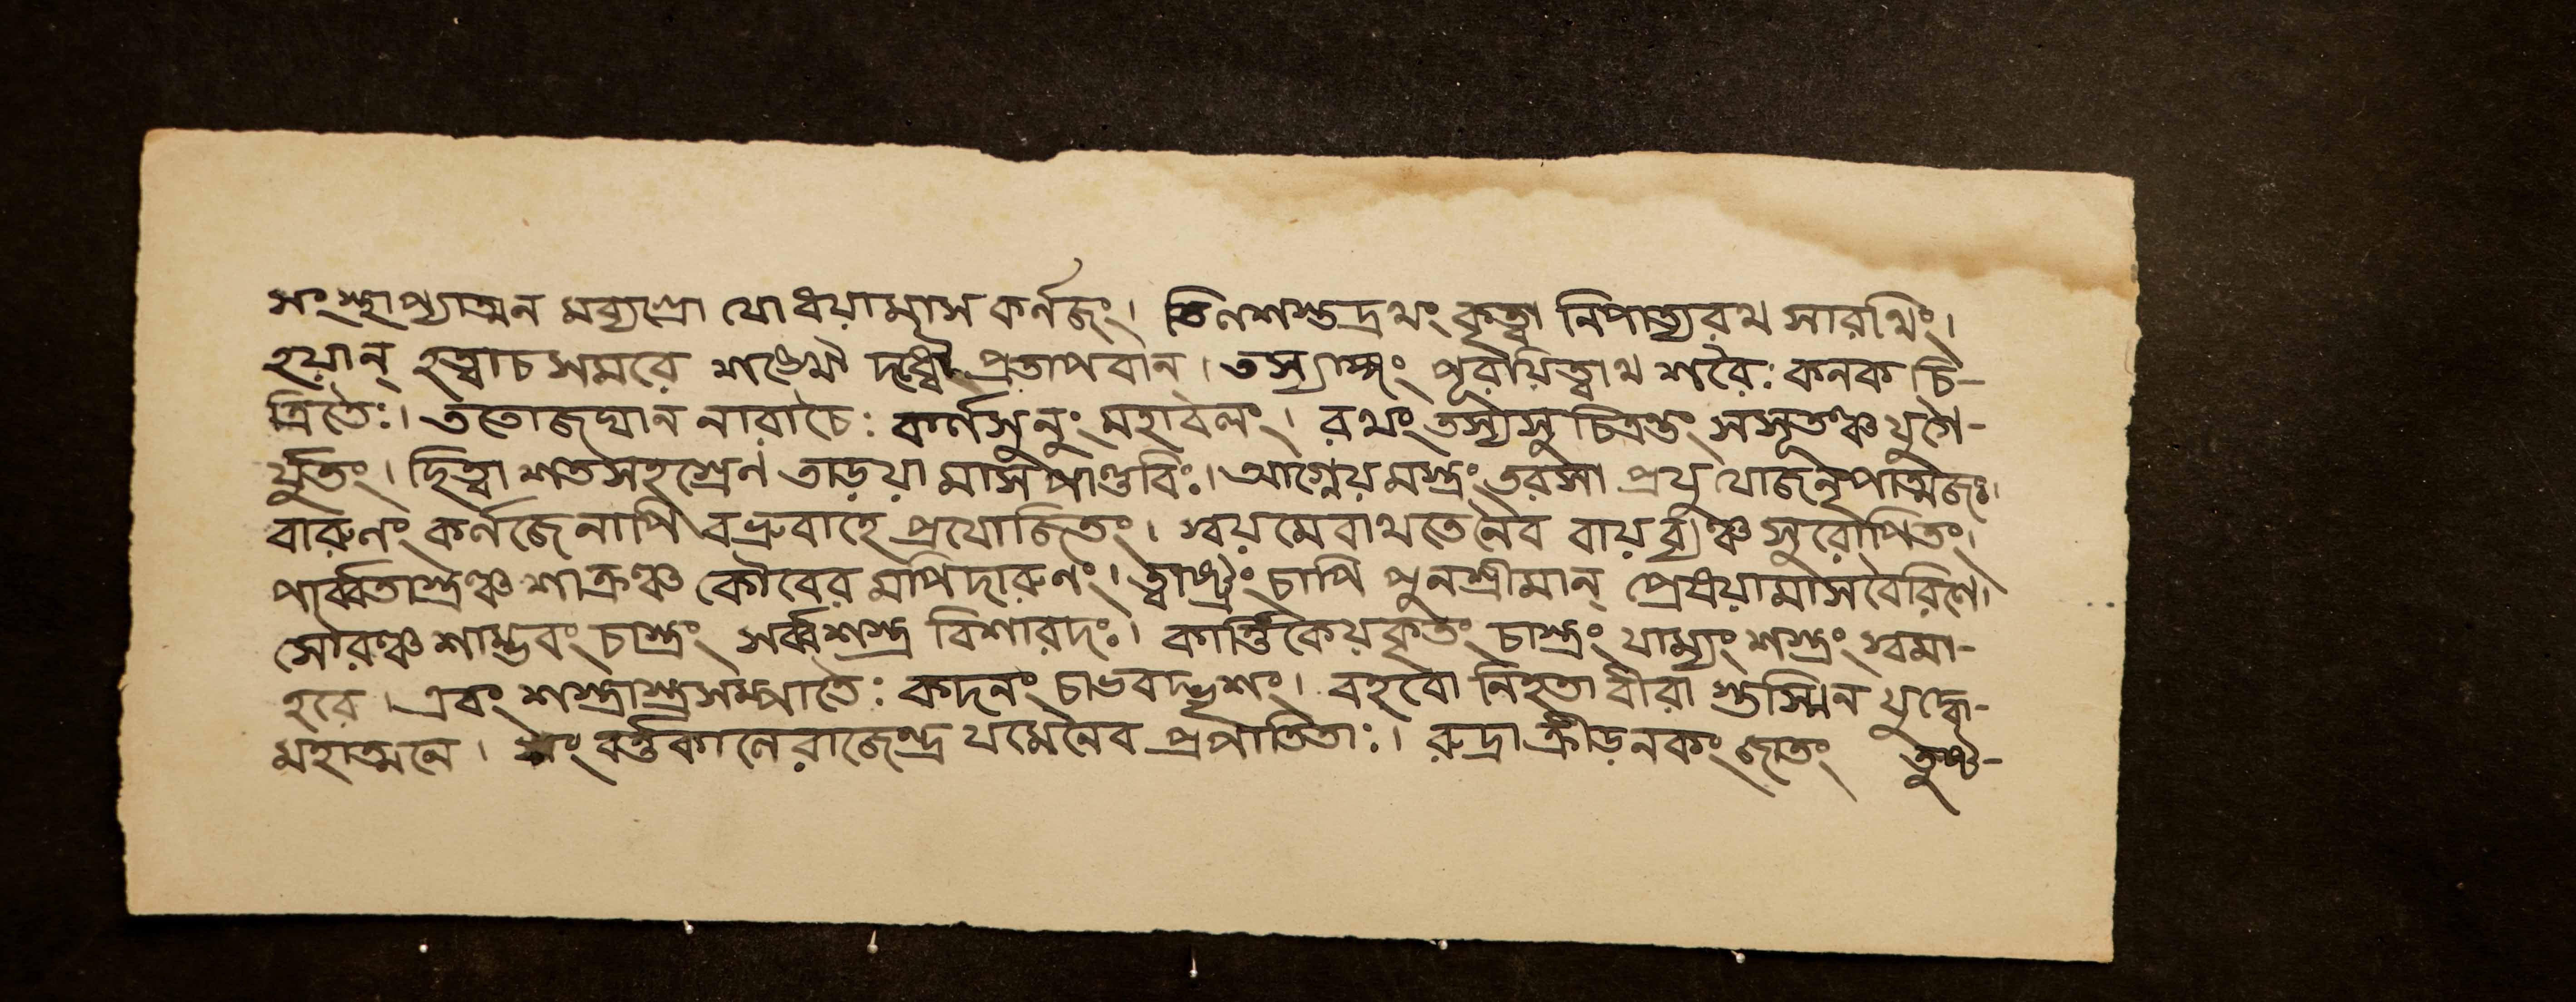 সংস্থাপ্যাত্মন মব্যগ্রো যোধয়ামাস কর্নজং। তিনশস্তদ্রথং কৃত্বা নিপাত্যরথ সারথিং।
হয়ান্ হত্বাচ সমরে শঙ্খেধৌ দধ্মৌ প্রতাপবান। তস্যাঙ্গং পূরয়িত্বাথ শরৈঃ কনক চি-
ত্রিতৈঃ। ততোজঘান নারাচৈঃ কার্নসুনুং মহাবলং। রথং তস্যসু চিত্রন্তং সসূতঞ্চ যুগৈ-
র্যুতং। ছিত্বা শতসহশ্রেন তাড়য়া মাস পাণ্ডবিঃ। আগ্নেয় মস্ত্রং তরসা প্রযু যোজনৃপাত্মজঃ।
বারুনং কর্নজে নাপি বভ্রুবাহে প্রযোজিতং। স্বয়মেবাথতেনৈব বায়ব্যঞ্চ সুরোপিতং।
পার্ব্বতাস্ত্রঞ্চ শাক্রঞ্চ কৌবের মপিদারুণং। ত্বাষ্ট্রং চাপি পুনশ্রীমান্ প্রেষয়ামাস বৈরিণে।
সৌরঞ্চ শাম্ভবং চাস্ত্রং সর্ব্বশস্ত্র বিশারদঃ। কার্ত্তিকেয় কৃতং চাস্ত্রং যাম্যং শস্ত্রং স্বমা-
হবে। এবং শস্ত্রাস্ত্রসম্পাতৈঃ কদনং চাভবদ্ভৃশং। বহবো নিহতা বীরা স্তস্মিন যুদ্ধে-
মহাত্মনে। সংবর্ত্তকালে রাজেন্দ্র যমেনৈব প্রপাতিতাঃ। রুদ্রাক্রীড়নকং জাতং